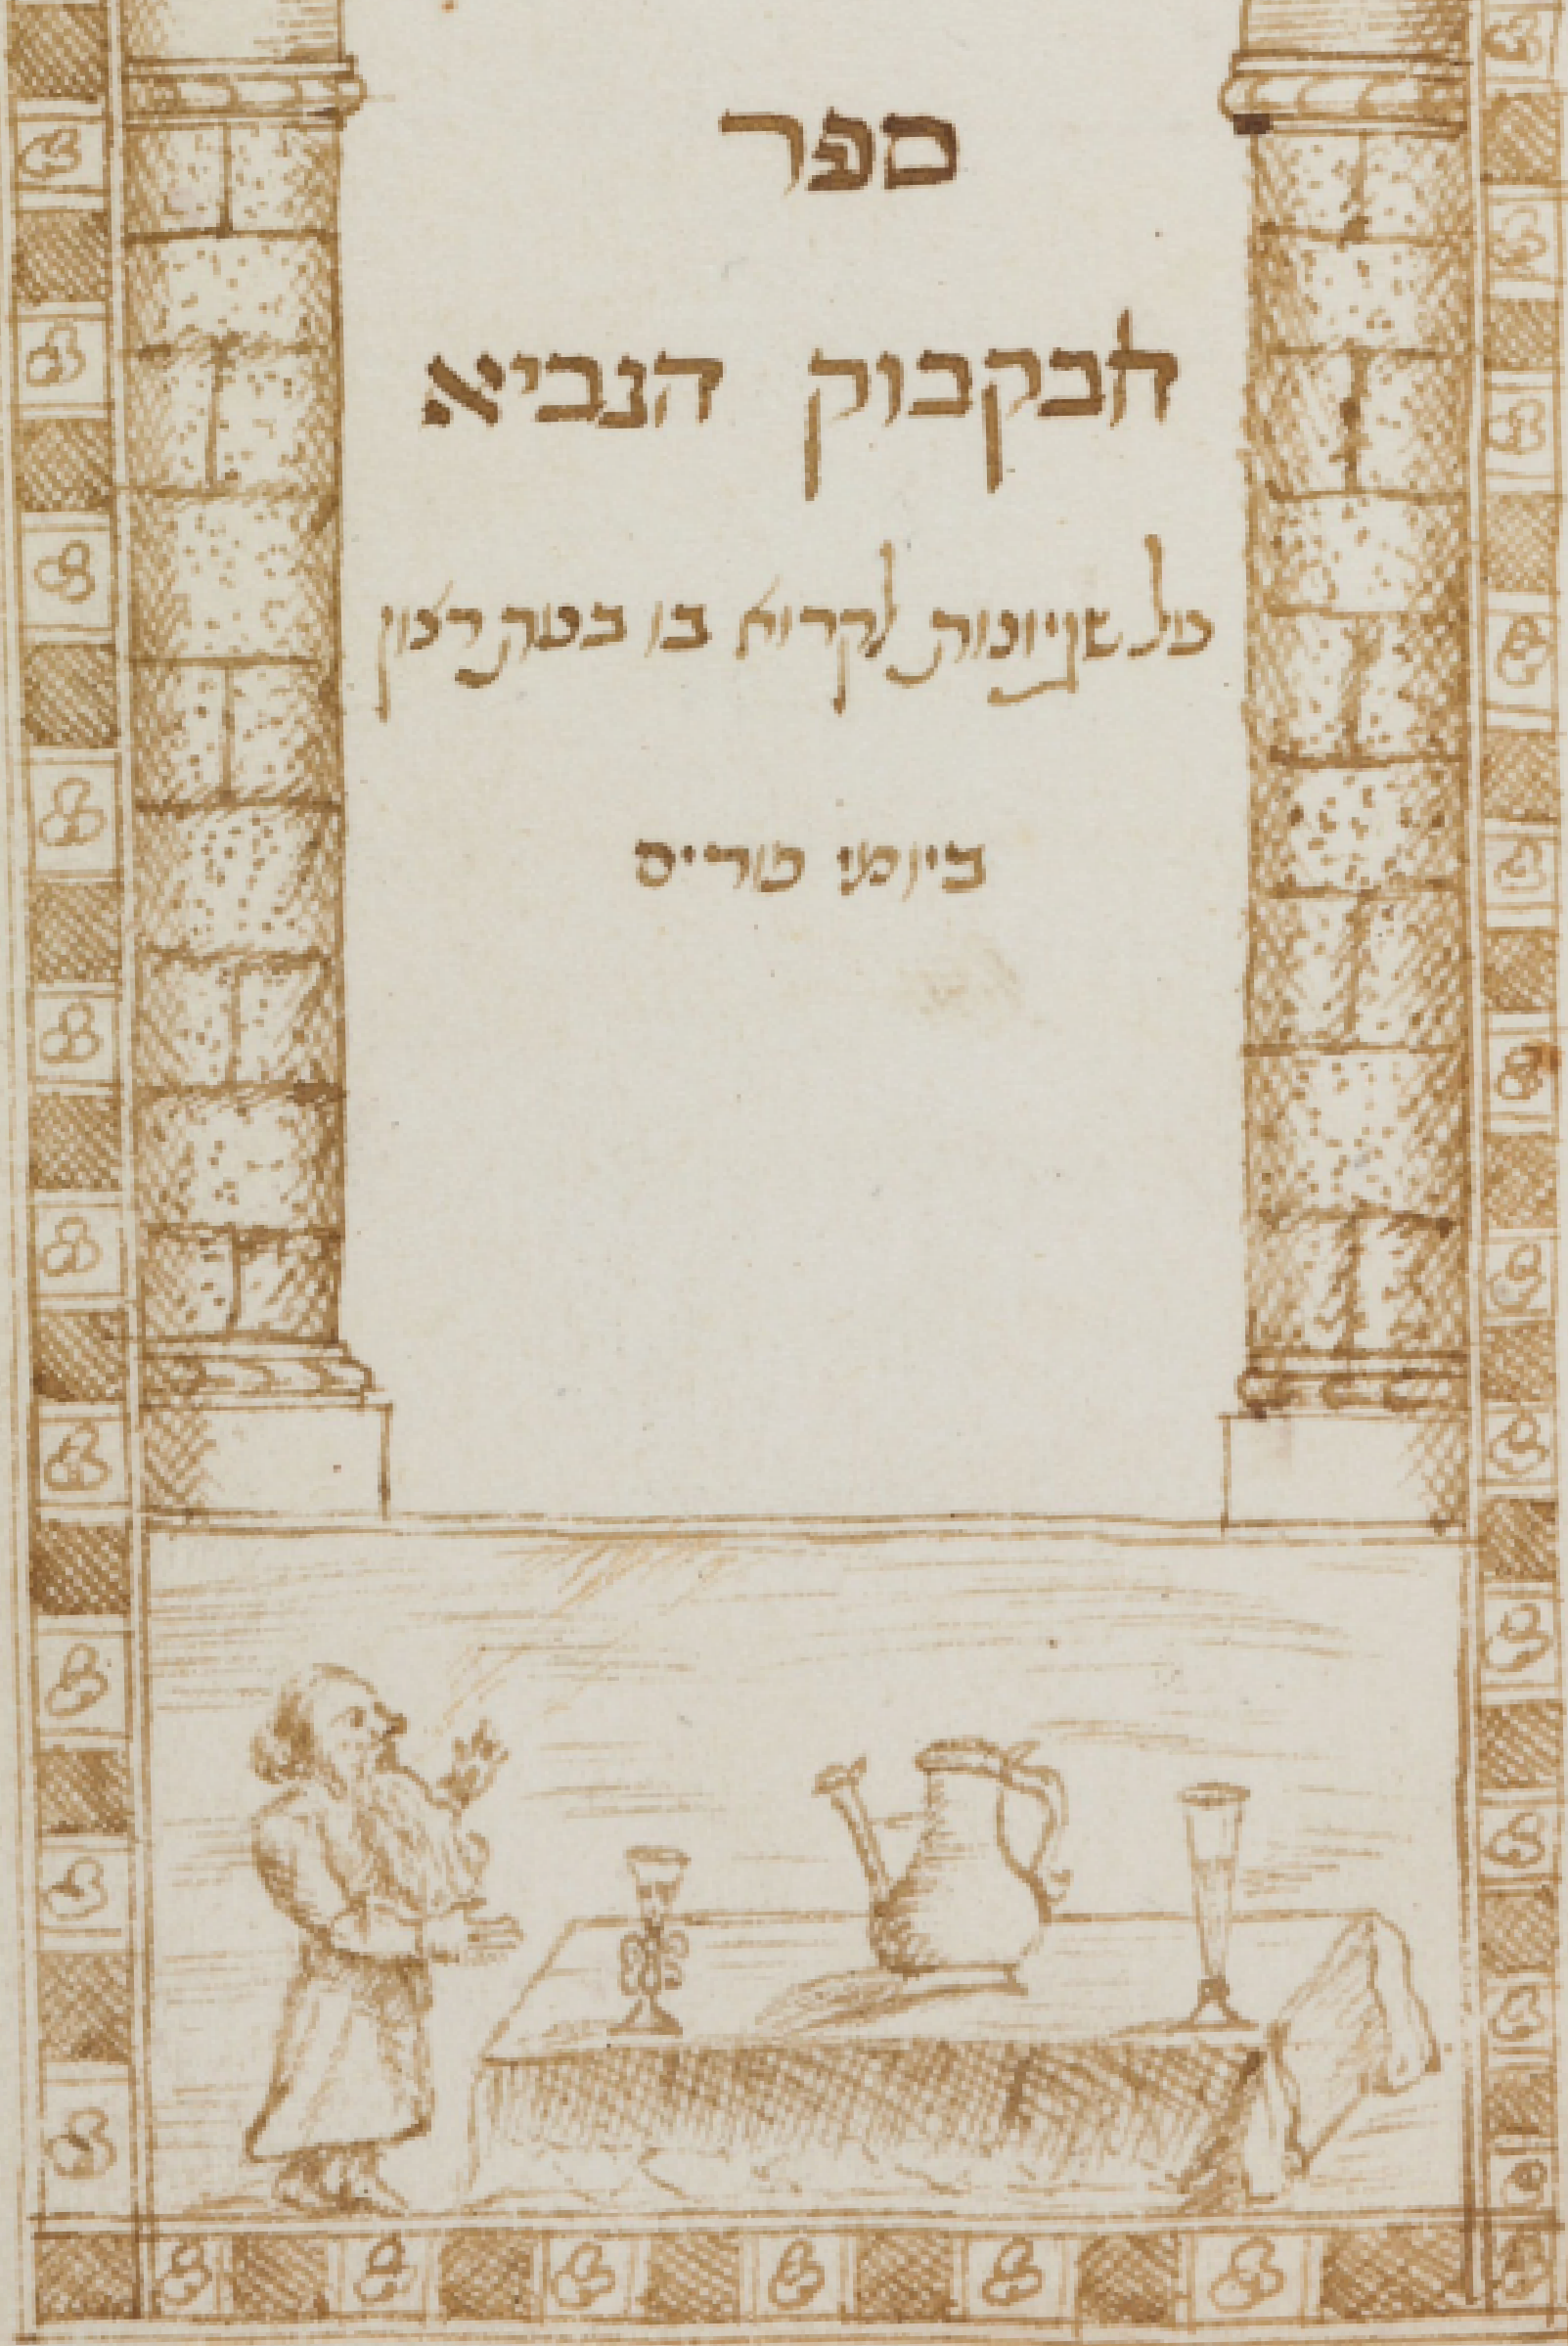 ספר
חבקבוק הנביא
על שגיונות לקרוא בו בעת רצון
בימי פורים